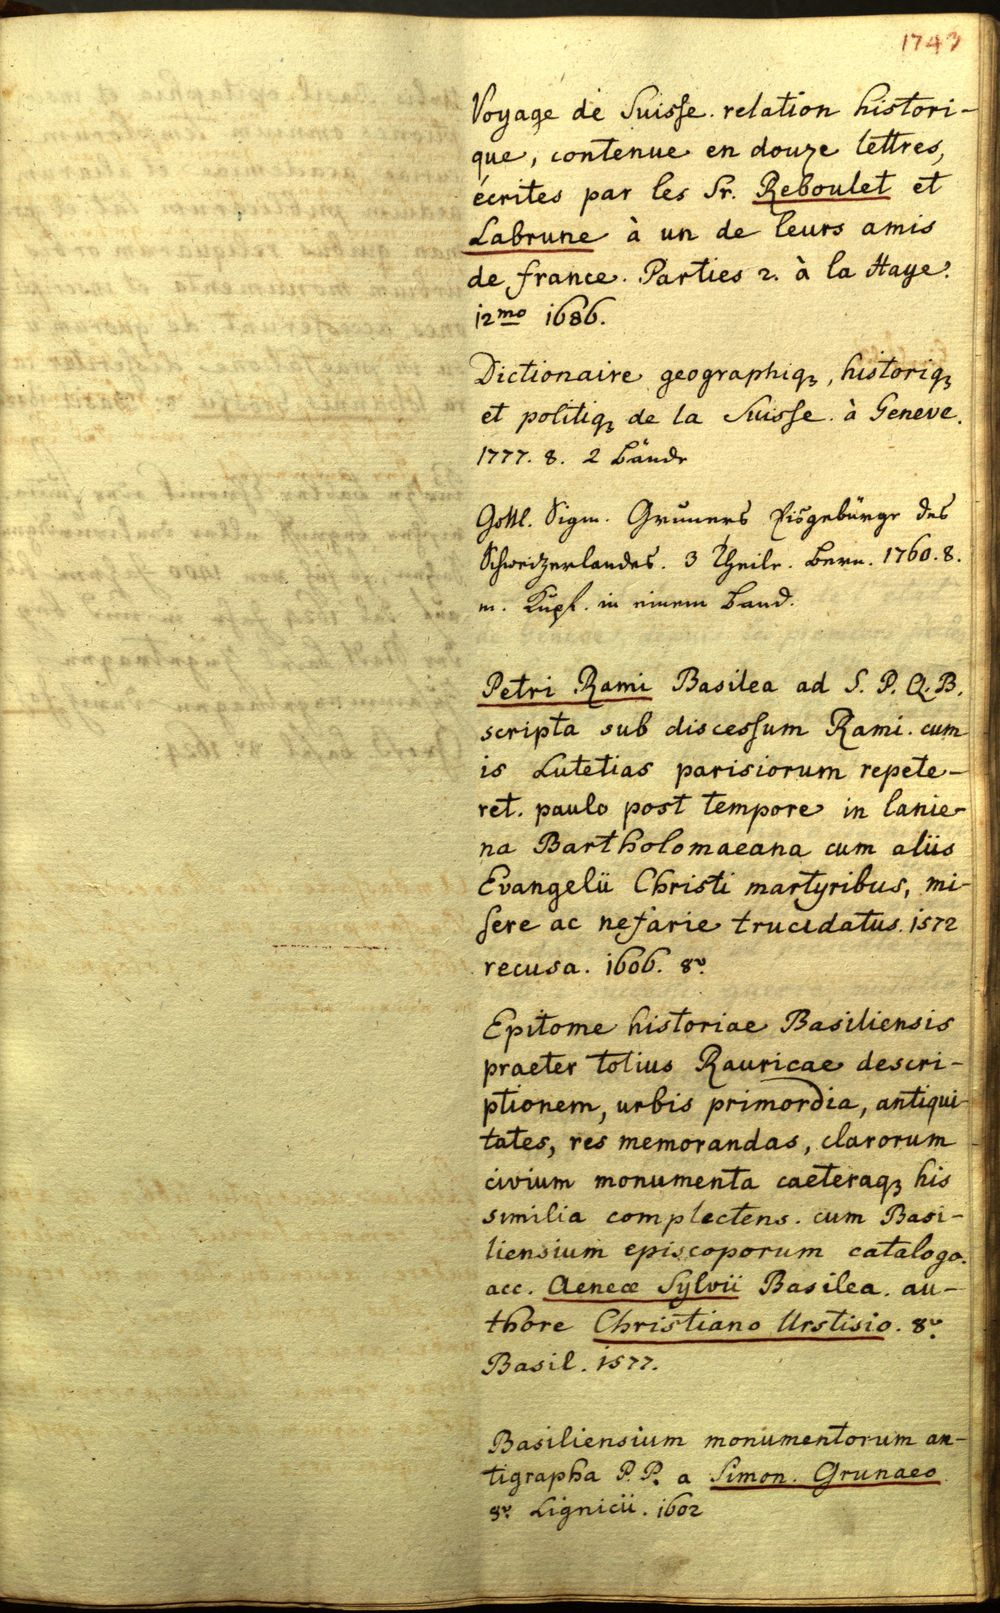 1743
Voyage de Suisse. relation histori-
que, contenue en douze lettres,
écrites par les Sr. Reboulet et
Labrune à un de leurs amis
de france. Parties 2. à la Haye.
12mo 1686.
Dictionaire geographiqꝫ, historiqꝫ
et politiqꝫ de la Suisse. à Geneve.
1777. 8. 2 Bände
Gottl. Sigm. Gruners Eisgebürge des
Schweitzerlandes. 3 Theile. Bern. 1760. 8.
m. Kupf. in einem Band.
Petri Rami Basilea ad S. P. Q. B.
scripta sub discessum Rami. cum
is Lutetias parisiorum repete-
ret. paulo post tempore in lanie-
na Bartholomaeana cum aliis
Evangelii Christi martyribus, mi-
sere ac nefarie trucidatus. 1572
recusa. 1606. 8v.
Epitome historiae Basiliensis
praeter totius Rauricae descri-
ptionem, urbis primordia, antiqui-
tates, res memorandas, clarorum
civium monumenta caeteraqꝫ his
similia complectens. cum Basi-
liensium episcoporum catalogo.
acc. Aeneae Sylvii Basilea. au-
thore Christiano Urstisio. 8v.
Basil. 1577.
Basiliensium monumentorum an-
tigrapha P. P. a Simon. Grunaeo
8v. Lignicii. 1602